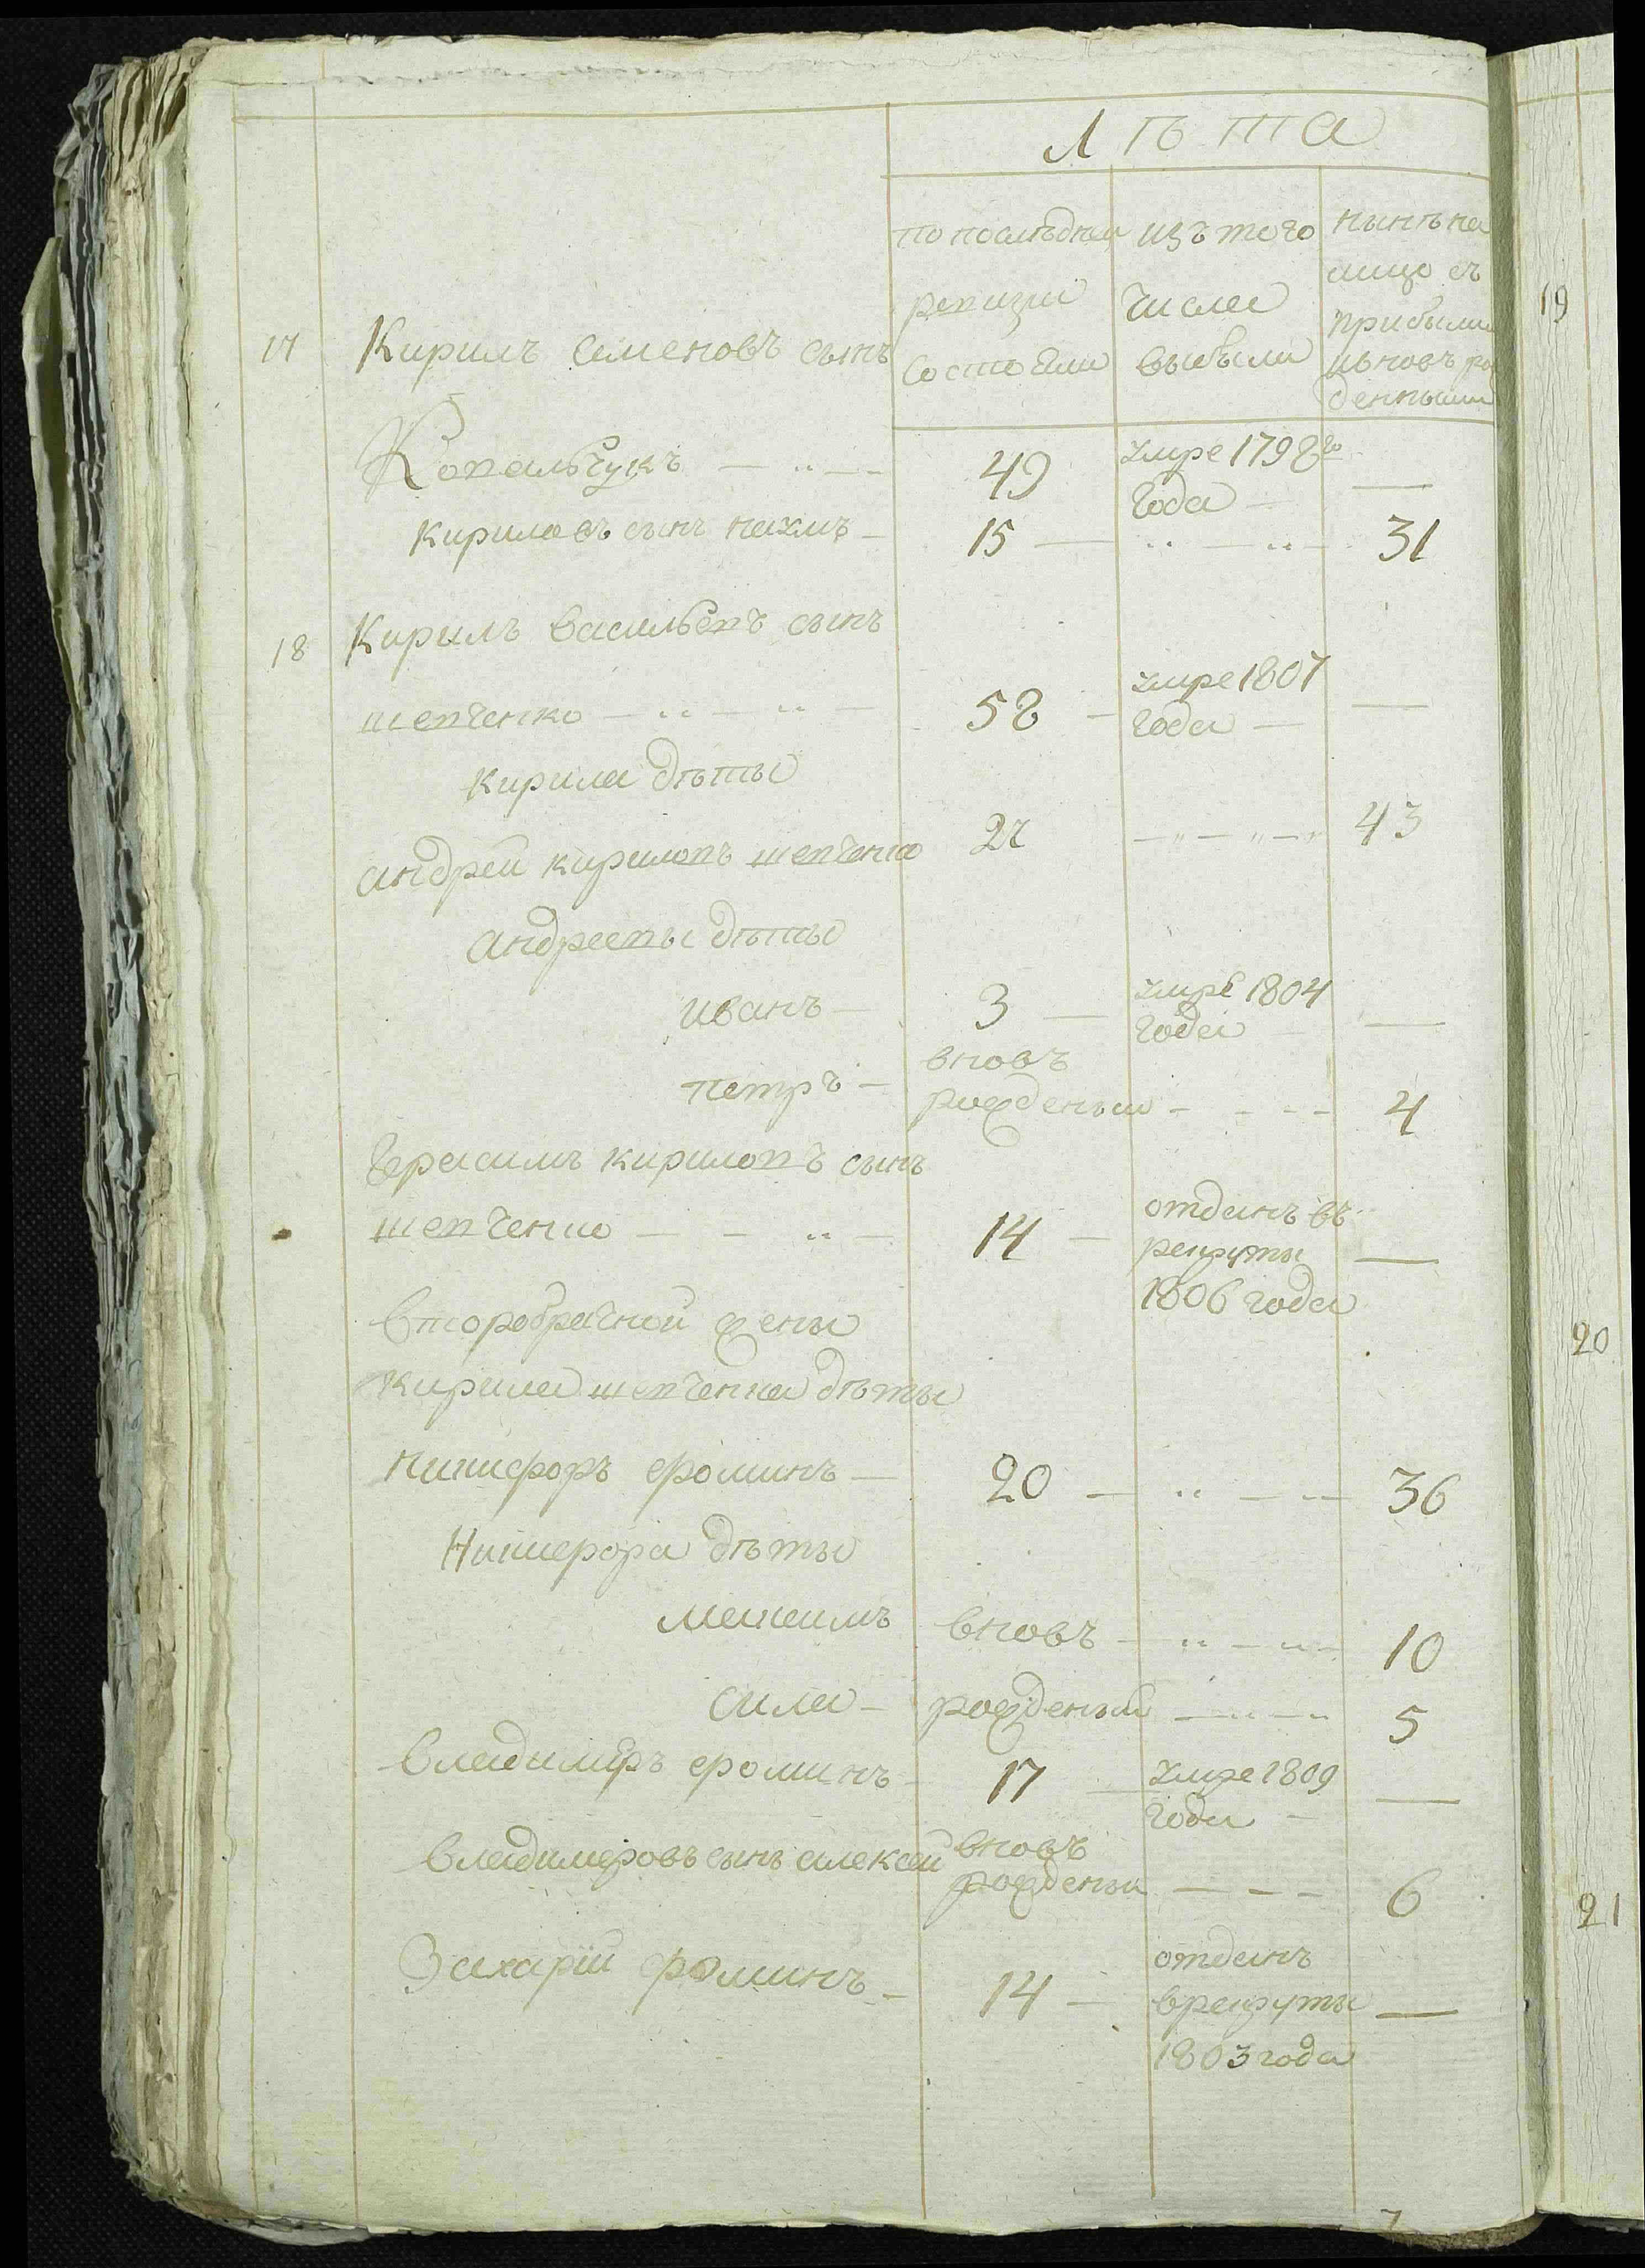 Лѣта
по послѣдней ревизіи состояли
изъ того числа выбыли
нынѣ на лицо съ прибылы и вновь рожденными
17 Кирилъ Семеновъ сынъ
Ковальчукъ — 49 умре 1798го года —
Кириловъ сынъ Наумъ — 15 — 31
18 Кирилъ Васильевъ сынъ
Шевченко — 52 — умре 1807 года —
Кирила дѣты
андрей Кириловъ шевченко 27 — 43
андреевы дѣты
иванъ — 3 — умре 1804 года —
петръ — вновъ рожденый — 4
Герасимъ кириловъ сынъ
шевченко — 14 — отданъ въ рекруты 1806 года —
второбрачной жены
Кирила шевченка дѣты
Никифоръ фоминъ — 20 — 36
Никифора дѣты
максимъ вновъ — 10
сила — рожденый — 5
владимиръ фоминъ — 17 — умре 1809 года —
владимеровъ сынъ алексей вновъ рожденый — 6
Захарій фоминъ — 14 — отданъ в рекруты 1803 года —
19
20
21